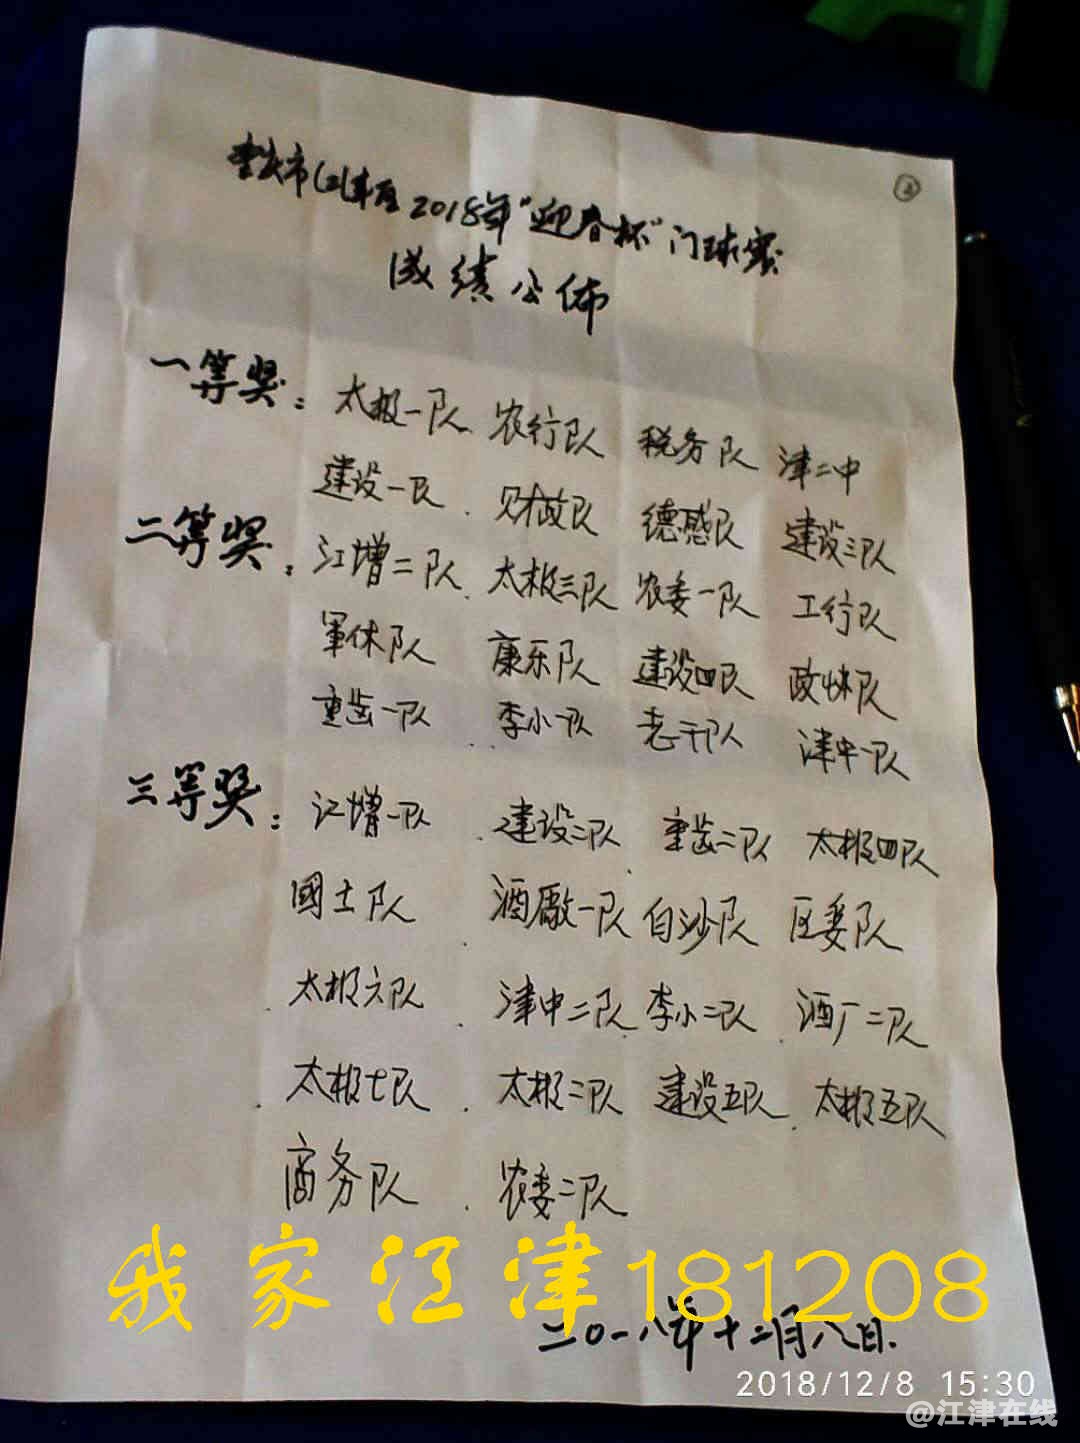 重庆市江津区2018年“迎春杯”门球赛
成绩公佈
一等奖：太极一队 农行队 税务队 津二中
建设一队 财政队 德感队 建设三队
二等奖：江增二队 太极三队 农委一队 工行队
軍休队 康乐队 建设四队 政快队
重齿一队 李小一队 老干队 津中一队
三等奖：江增一队 建设二队 重齿二队 太极四队
國土队 酒廠一队 白沙队 区委队
太极六队 津中二队 李小二队 酒厂二队
太极七队 太极二队 建设五队 太极五队
商务队 农委二队
我家江津181208
二0一八年十二月八日.
2018/12/8 15:30
@江津在线